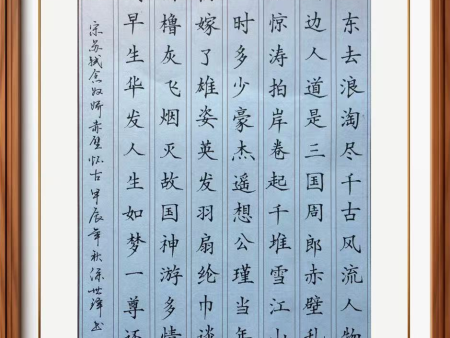 东去浪淘尽千古风流人物
边人道是三国周郎赤壁乱
惊涛拍岸卷起千堆雪江山
时多少豪杰遥想公瑾当年
嫁了雄姿英发羽扇纶巾谈
橹灰飞烟灭故国神游多情
早生华发人生如梦一尊还
宋苏轼念奴娇赤壁怀古甲辰年秋